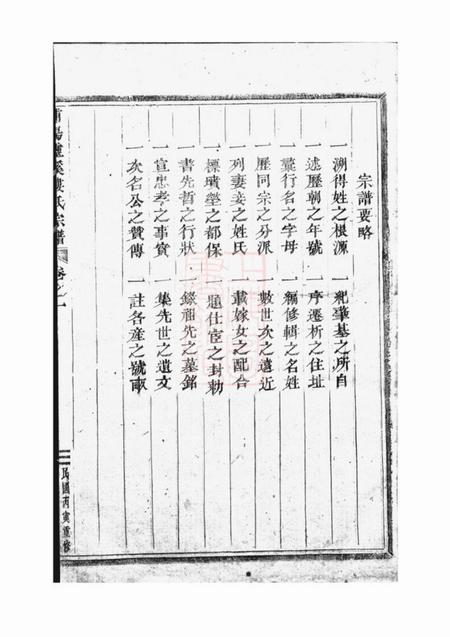 宗譜要略
一溯得姓之根源 一紀肇基之所自
一述歷朝之年號 一序遷析之住址
一彙行名之字母 一編修輯之名姓
一歷同宗之分派 一數世次之遠近
一列妻妾之姓氏 一載嫁女之配合
一標墳塋之都保 一題仕宦之封勅
一書先哲之行狀 一錄祖先之墓銘
一宣忠孝之事實 一集先世之遺文
一次名公之贊傳 一註各産之號畝
浦陽 溪 氏宗譜 卷之一
民國丙寅重修